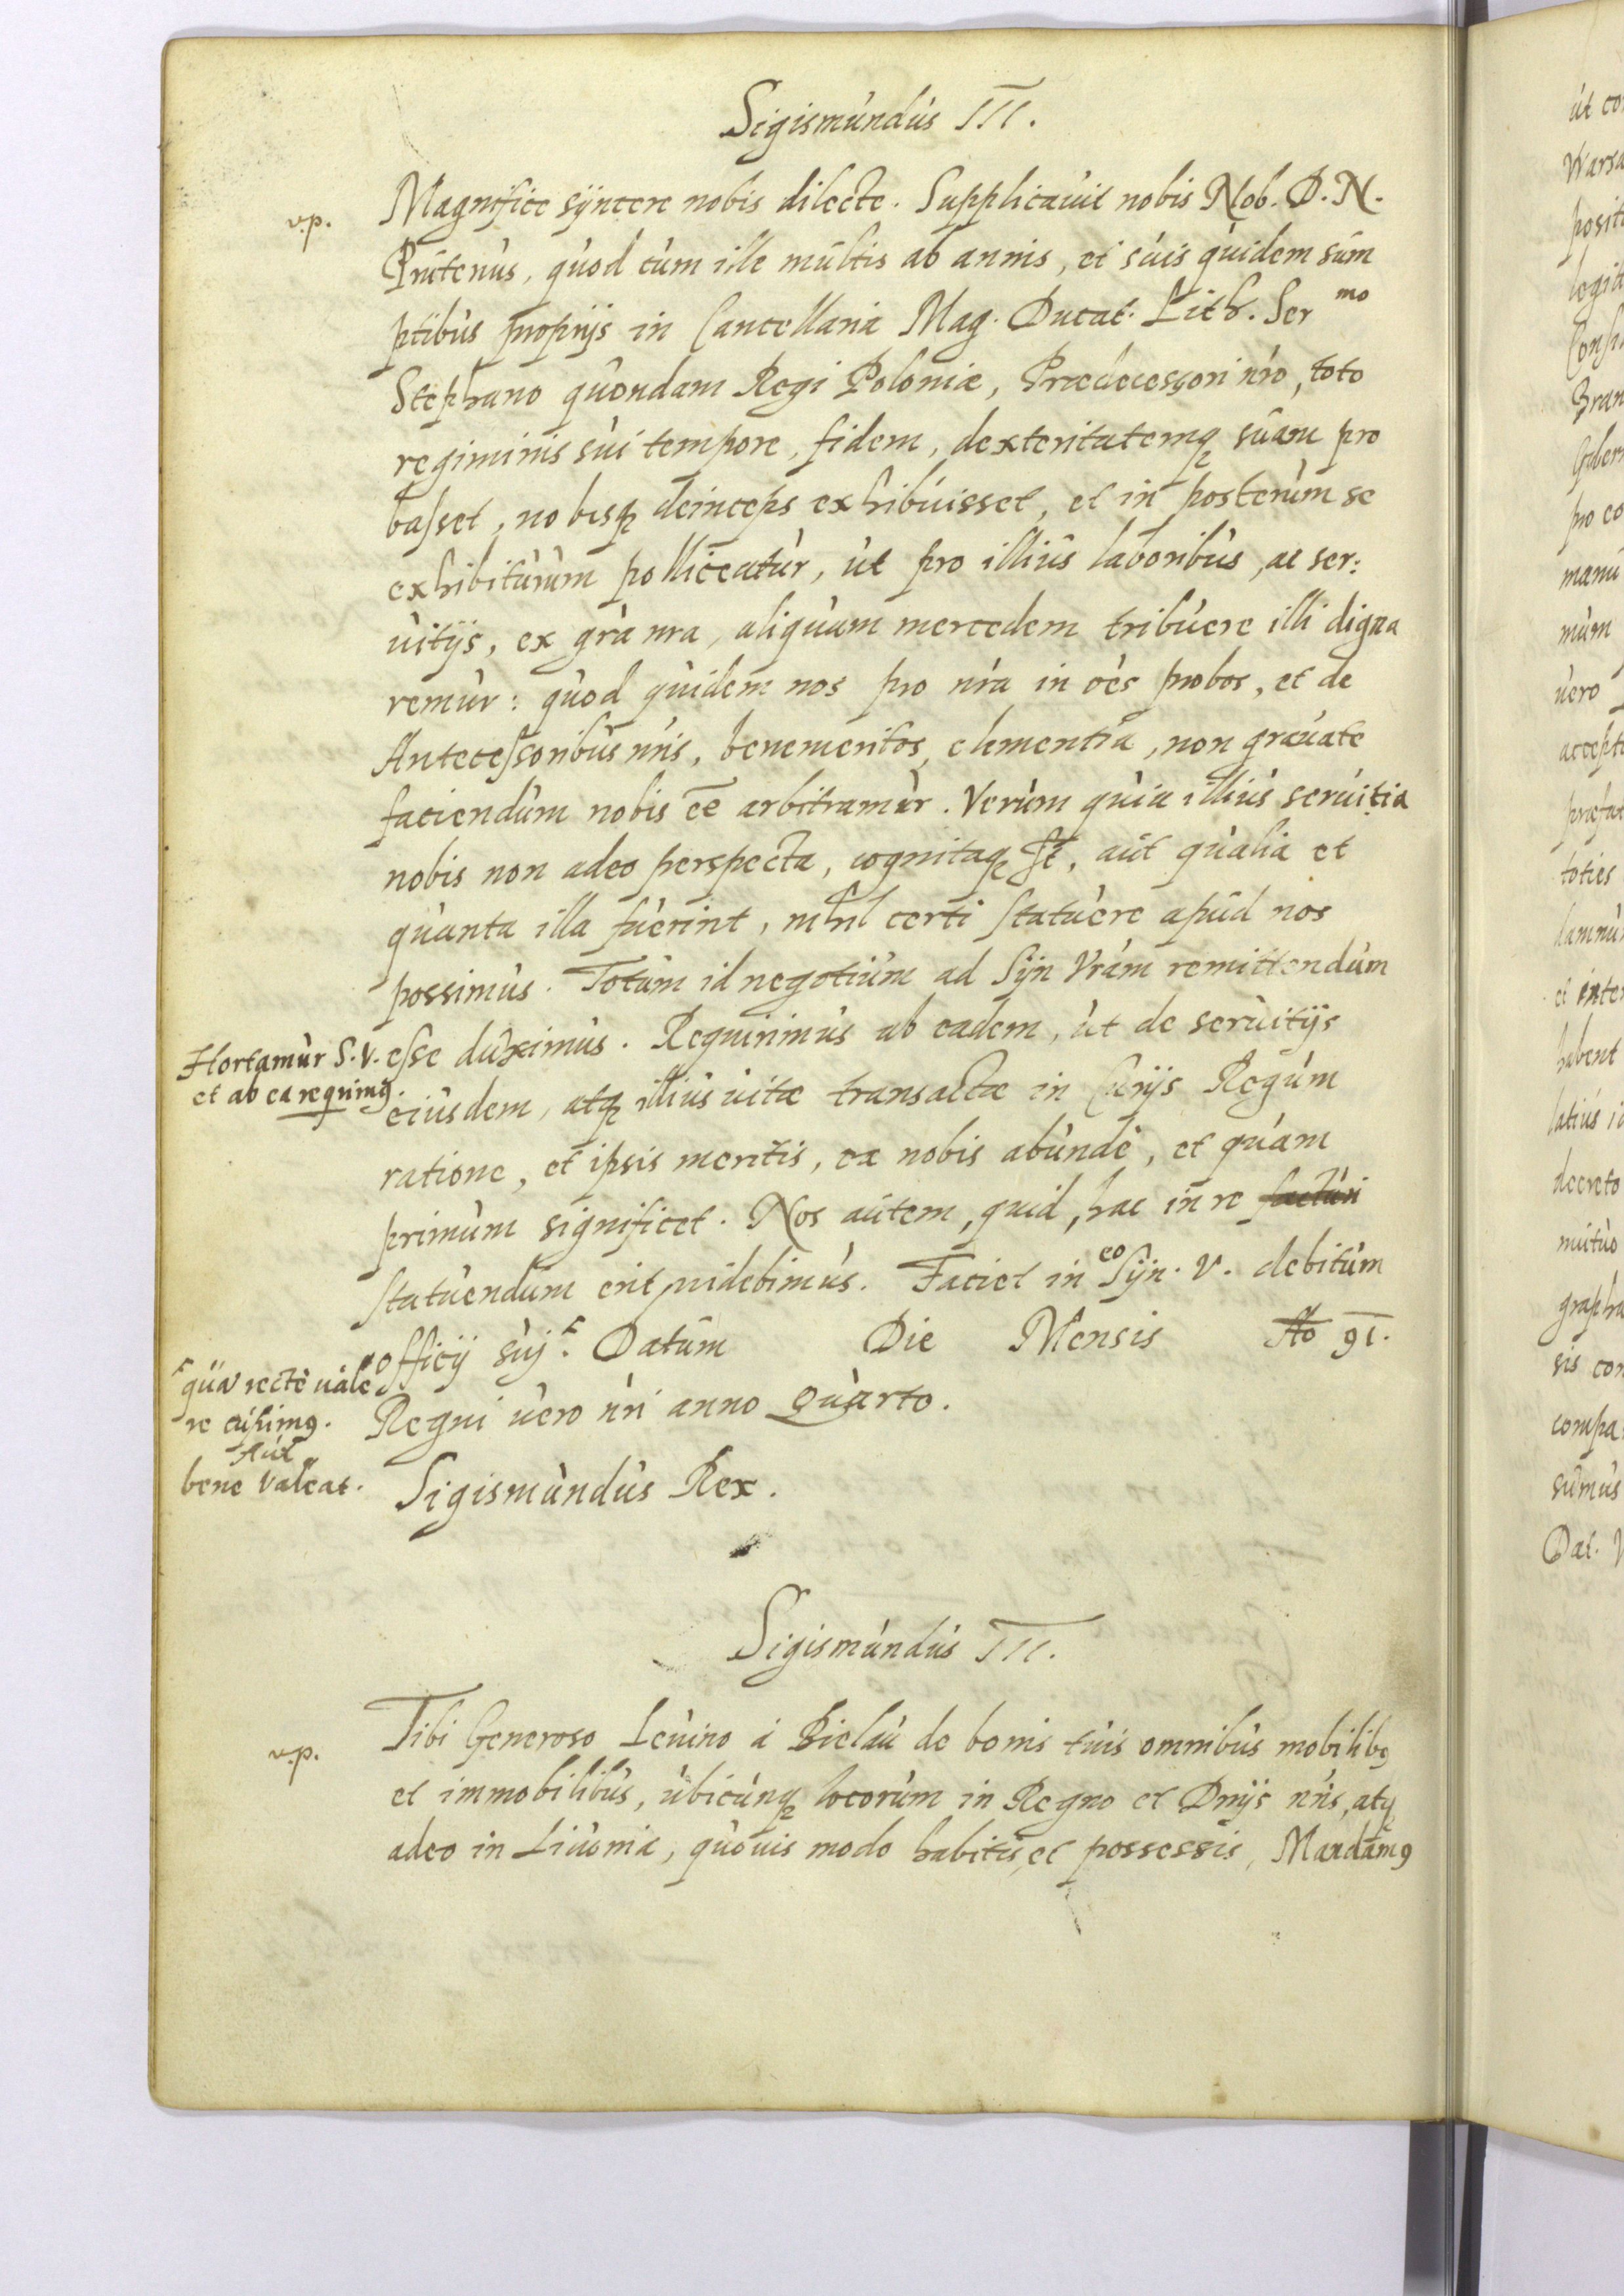 Sigismundus III.
v.p.
Magnifice syncere nobis dilecte. Supplicauit nobis Nob. D. N.
Prutenus, quod cum ille multis ab annis, et suis quidem sum
ptibus proprijs in Cancellaria Mag. Ducat. Lith. Ser mo
Stephano quondam Regi Poloniæ, Prædecessori nro, toto
regiminis sui tempore, fidem, dexteritatemq suam pro
basset, nobisq deinceps exhibuisset, et in posterum se
exhibiturum polliceatur, ut pro illius laboribus, ac ser:
uitijs, ex gra nra, aliquam mercedem tribuere illi digna
remur: quod quidem nos pro nra in oes probos, et de
Antecessoribus nris, benemeritos, clementia, non grauate
faciendum nobis ee arbitramur. Verum quia illius seruitia
nobis non adeo perspecta, cognitaq st, aut qualia et
quanta illa fuerint, nihil certi statuere apud nos
possimus. Totum id negotium ad Syn Vram remittendum
Hortamur S. V. esse duximus. Requirimus ab eadem, ut de seruitijs
et ab ea requirimg.
eiusdem, atq illius uitæ transactæ in Curijs Regum
ratione, et ipsis meritis, ea nobis abundè, et quam
primum significet. Nos autem, quid, hac in re facturi
statuendum erit uidebimus. Faciet in eo Syn. V. debitum
officij suj. Datum Die Mensis Ao 91.
qua recte uale
re cupimg.
Aut
bene Valeat.
Regni uero nri anno quarto.
Sigismundus Rex.
Sigismundus III.
v.p.
Tibi Generoso Leuino à Bielau de bonis tuis omnibus mobilibg
et immobilibus, ubicunq locorum in Regno et Dnijs nris, atq
adeo in Liuonia, quouis modo habitis, et possessis, Mandamg
ut co
Warsa
posit
legit
Consi
Bran
Guber
pro co
manu
mum
uero
accepta
prefat
toties
damnu
et inter
habent
latius i
decreto
mutuo
grapha
sis con
compa
sumus
Dat. V